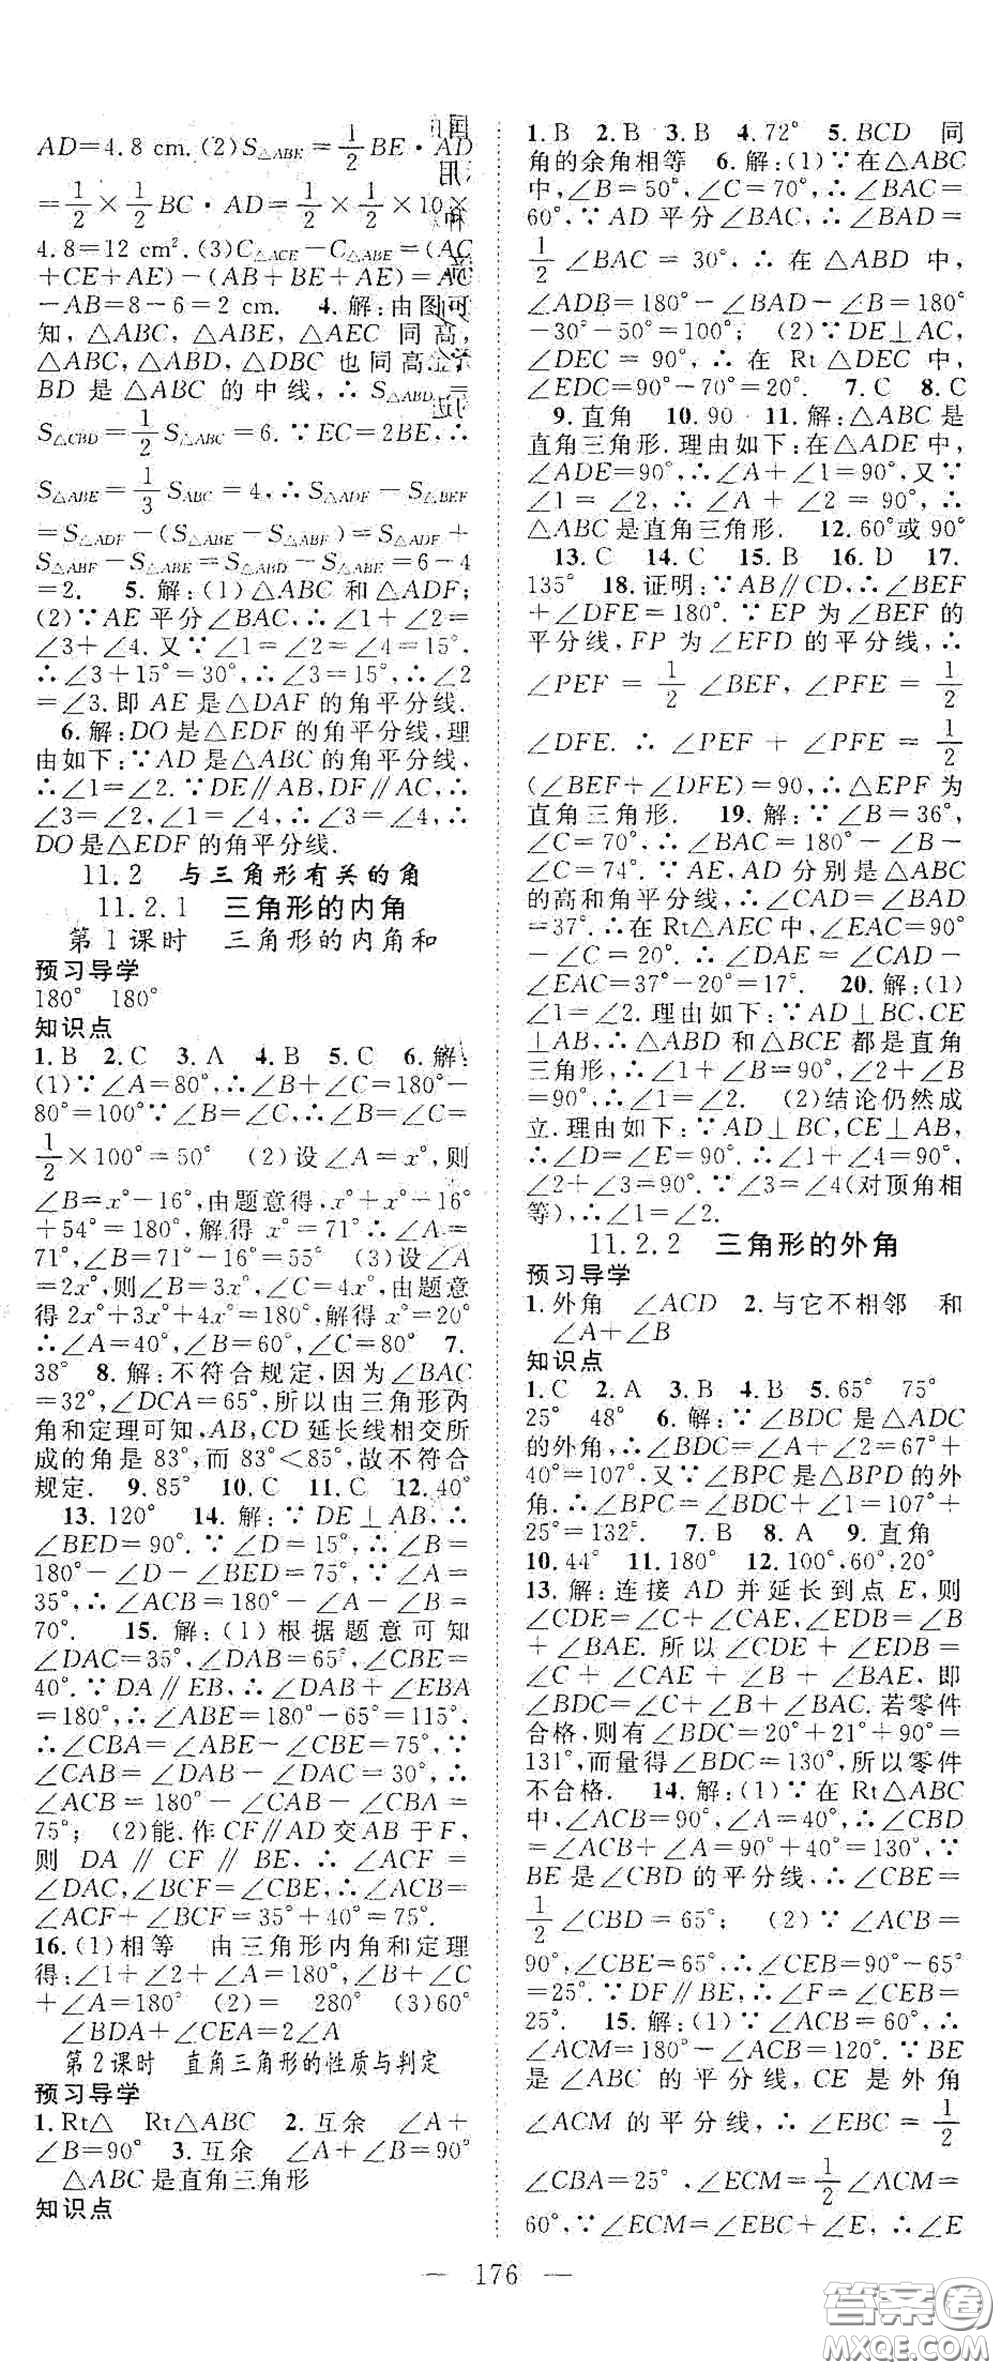 AD=4.8 cm.(2)S△ABE=1/2BE·AD
=1/2×1/2BC·AD=1/2×1/2×10×
4.8=12 cm².(3)C△ACE−C△ABE=(AC
+CE+AE)−(AB+BE+AE)=AC
−AB=8−6=2 cm. 4.解:由图可
知,△ABC,△ABE,△AEC 同高,
△ABC,△ABD,△DBC 也同高.
BD 是△ABC 的中线,∴S△ABD=
S△CBD=1/2S△ABC=6.∵EC=2BE,∴
S△ABE=1/3SABC=4,∴S△ADF−S△BEF
=S△ADF−(S△ABE−S△ABF)=S△ADF+
S△ABF−S△ABE=S△ABD−S△ABE=6−4
=2. 5.解:(1)△ABC 和△ADF;
(2)∵AE 平分∠BAC,∴∠1+∠2=
∠3+∠4.又∵∠1=∠2=∠4=15°.
∴∠3+15°=30°,∴∠3=15°,∴∠2
=∠3.即 AE 是△DAF 的角平分线.
6.解:DO是△EDF 的角平分线,理
由如下:∵AD是△ABC的角平分线,
∴∠1=∠2.∵DE∥AB,DF∥AC,∴
∠3=∠2,∠1=∠4,∴∠3=∠4,∴
DO是△EDF的角平分线.
11.2 与三角形有关的角
11.2.1 三角形的内角
第1课时 三角形的内角和
预习导学
180° 180°
知识点
1.B 2.C 3.A 4.B 5.C 6.解:
(1)∵∠A=80°,∴∠B+∠C=180°−
80°=100°∵∠B=∠C,∴∠B=∠C=
1/2×100°=50° (2)设∠A=x°,则
∠B=x°−16°,由题意得,x°+x°−16°
+54°=180°,解得 x°=71°∴∠A=
71°,∠B=71°−16°=55° (3)设∠A
=2x°,则∠B=3x°,∠C=4x°,由题意
得2x°+3x°+4x°=180°,解得x°=20°
∴∠A=40°,∠B=60°,∠C=80° 7.
38° 8.解:不符合规定,因为∠BAC
=32°,∠DCA=65°,所以由三角形内
角和定理可知,AB,CD延长线相交所
成的角是 83°,而 83°<85°,故不符合
规定. 9.85° 10.C 11.C 12.40°
13.120° 14.解:∵DE⊥AB,∴
∠BED=90°.∵∠D=15°,∴∠B=
180°−∠D−∠BED=75°.∵∠A=
35°,∴∠ACB=180°−∠A−∠B=
70°. 15.解:(1)根据题意可知
∠DAC=35°,∠DAB=65°,∠CBE=
40°.∵DA∥EB,∴∠DAB+∠EBA
=180°,∴∠ABE=180°−65°=115°.
∴∠CBA=∠ABE−∠CBE=75°,∵
∠CAB=∠DAB−∠DAC=30°,∴
∠ACB=180°−∠CAB−∠CBA=
75°; (2)能.作CF∥AD交AB于F,
则 DA∥CF∥BE,∴∠ACF=
∠DAC,∠BCF=∠CBE,∴∠ACB=
∠ACF+∠BCF=35°+40°=75°.
16.(1)相等 由三角形内角和定理
得:∠1+∠2+∠A=180°,∠B+∠C
+∠A=180° (2)= 280° (3)60°
∠BDA+∠CEA=2∠A
第2课时 直角三角形的性质与判定
预习导学
1.Rt△ Rt△ABC 2.互余 ∠A+
∠B=90° 3.互余 ∠A+∠B=90°
△ABC是直角三角形
知识点
1.B 2.B 3.B 4.72° 5.BCD 同
角的余角相等 6.解:(1)∵在△ABC
中,∠B=50°,∠C=70°,∴∠BAC=
60°.∵AD 平分∠BAC,∴∠BAD=
1/2∠BAC=30°,∴在△ABD中,
∠ADB=180°−∠BAD−∠B=180°
−30°−50°=100°; (2)∵DE⊥AC,
∠DEC=90°,∴在 Rt△DEC 中,
∠EDC=90°−70°=20°. 7.C 8.C
9.直角 10.90 11.解:△ABC 是
直角三角形.理由如下:在△ADE中,
∠ADE=90°,∴∠A+∠1=90°,又∵
∠1=∠2,∴∠A+∠2=90°,∴
△ABC是直角三角形. 12.60°或90°
13.C 14.C 15.B 16.D 17.
135° 18.证明:∵AB∥CD,∴∠BEF
+∠DFE=180°.∵EP 为∠BEF 的
平分线,FP 为∠EFD 的平分线,∴
∠PEF=1/2∠BEF,∠PFE=1/2
∠DFE.∴∠PEF+∠PFE=1/2
(∠BEF+∠DFE)=90,∴△EPF 为
直角三角形. 19.解:∵∠B=36°,
∠C=70°,∴∠BAC=180°−∠B−
∠C=74°.∵AE,AD 分别是△ABC
的高和角平分线,∴∠CAD=∠BAD
=37°.∴在Rt△AEC中,∠EAC=90°
−∠C=20°.∴∠DAE=∠CAD−
∠EAC=37°−20°=17°. 20.解:(1)
∠1=∠2.理由如下:∵AD⊥BC,CE
⊥AB,∴△ABD和△BCE都是直角
三角形,∴∠1+∠B=90°,∠2+∠B
=90°,∴∠1=∠2. (2)结论仍然成
立.理由如下:∵AD⊥BC,CE⊥AB,
∴∠D=∠E=90°.∴∠1+∠4=90°,
∠2+∠3=90°.∵∠3=∠4(对顶角相
等),∴∠1=∠2.
11.2.2 三角形的外角
预习导学
1.外角 ∠ACD 2.与它不相邻 和
∠A+∠B
知识点
1.C 2.A 3.B 4.B 5.65° 75°
25° 48° 6.解:∵∠BDC是△ADC
的外角,∴∠BDC=∠A+∠2=67°+
40°=107°.又∵∠BPC是△BPD的外
角.∴∠BPC=∠BDC+∠1=107°+
25°=132°. 7.B 8.A 9.直角
10.44° 11.180° 12.100°,60°,20°
13.解:连接 AD 并延长到点 E,则
∠CDE=∠C+∠CAE,∠EDB=∠B
+∠BAE.所以∠CDE+∠EDB=
∠C+∠CAE+∠B+∠BAE,即
∠BDC=∠C+∠B+∠BAC.若零件
合格,则有∠BDC=20°+21°+90°=
131°,而量得∠BDC=130°,所以零件
不合格. 14.解:(1)∵在 Rt△ABC
中,∠ACB=90°,∠A=40°,∴∠CBD
=∠ACB+∠A=90°+40°=130°,∵
BE是∠CBD的平分线,∴∠CBE=
1/2∠CBD=65°; (2)∵∠ACB=
90°,∠CBE=65°,∴∠CEB=90°−65°
=25°.∵DF∥BE,∴∠F=∠CEB=
25°. 15.解:(1)∵∠ACB=60°,∴
∠ACM=180°−∠ACB=120°.∵BE
是∠ABC 的平分线,CE 是外角
∠ACM 的平分线,∴∠EBC=1/2
∠CBA=25°,∠ECM=1/2∠ACM=
60°,∵∠ECM=∠EBC+∠E,∴∠E
— 176 —
答案圈
MXQE.COM